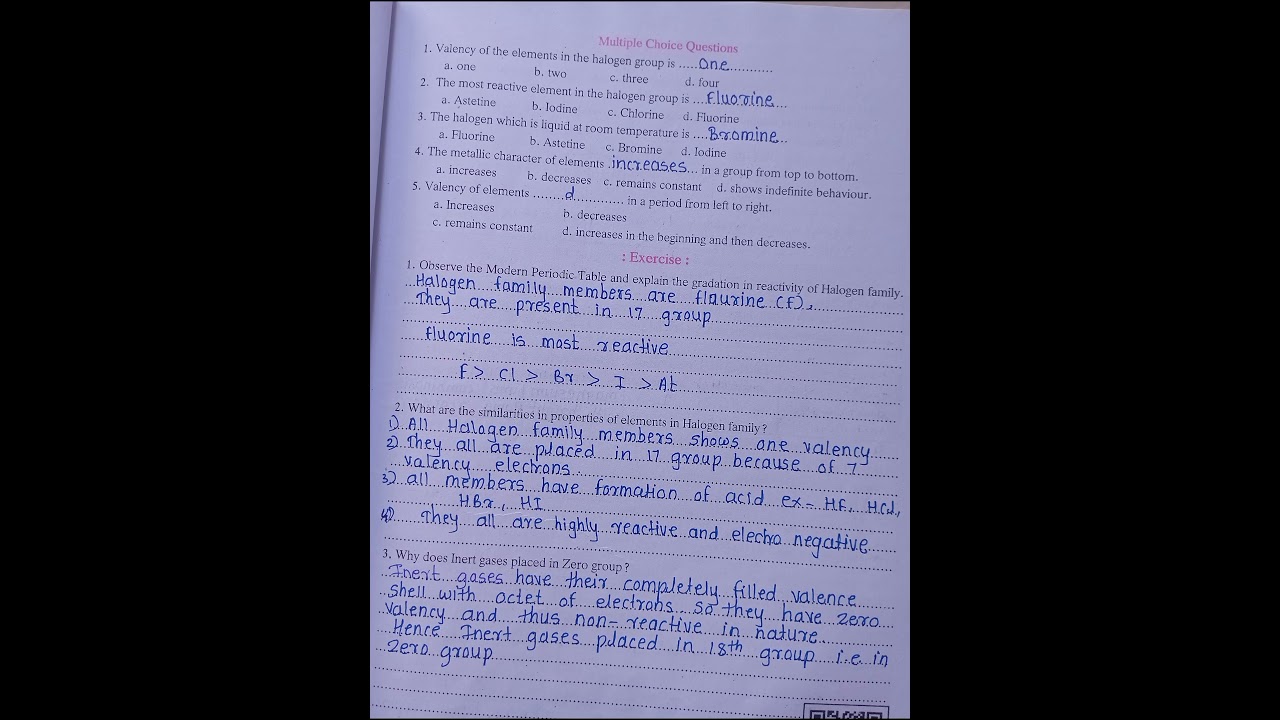 Multiple Choice Questions
1. Valency of the elements in the halogen group is .....one...........
a. one b. two c. three d. four
2. The most reactive element in the halogen group is ....Fluorine...
a. Astetine b. Iodine c. Chlorine d. Fluorine
3. The halogen which is liquid at room temperature is ....Bromine..
a. Fluorine b. Astetine c. Bromine d. Iodine
4. The metallic character of elements .increases... in a group from top to bottom.
a. increases b. decreases c. remains constant d. shows indefinite behaviour.
5. Valency of elements ........d............ in a period from left to right.
a. Increases b. decreases
c. remains constant d. increases in the beginning and then decreases.
: Exercise :
1. Observe the Modern Periodic Table and explain the gradation in reactivity of Halogen family.
Halogen family members are flaurine (f),
They are present in 17 group
fluorine is most reactive
F > Cl > Br > I > At
2. What are the similarities in properties of elements in Halogen family?
1) All Halogen family members shows one valency
2) They all are placed in 17 group because of 7
valency electrons
3) all members have formation of acid ex- HF, HCl,
HBr, HI
4) They all are highly reactive and electro negative
3. Why does Inert gases placed in Zero group?
Inert gases have their completely filled valence
shell with octet of electrons so they have zero
valency and thus non-reactive in nature
Hence Inert gases placed in 18th group i.e in
zero group